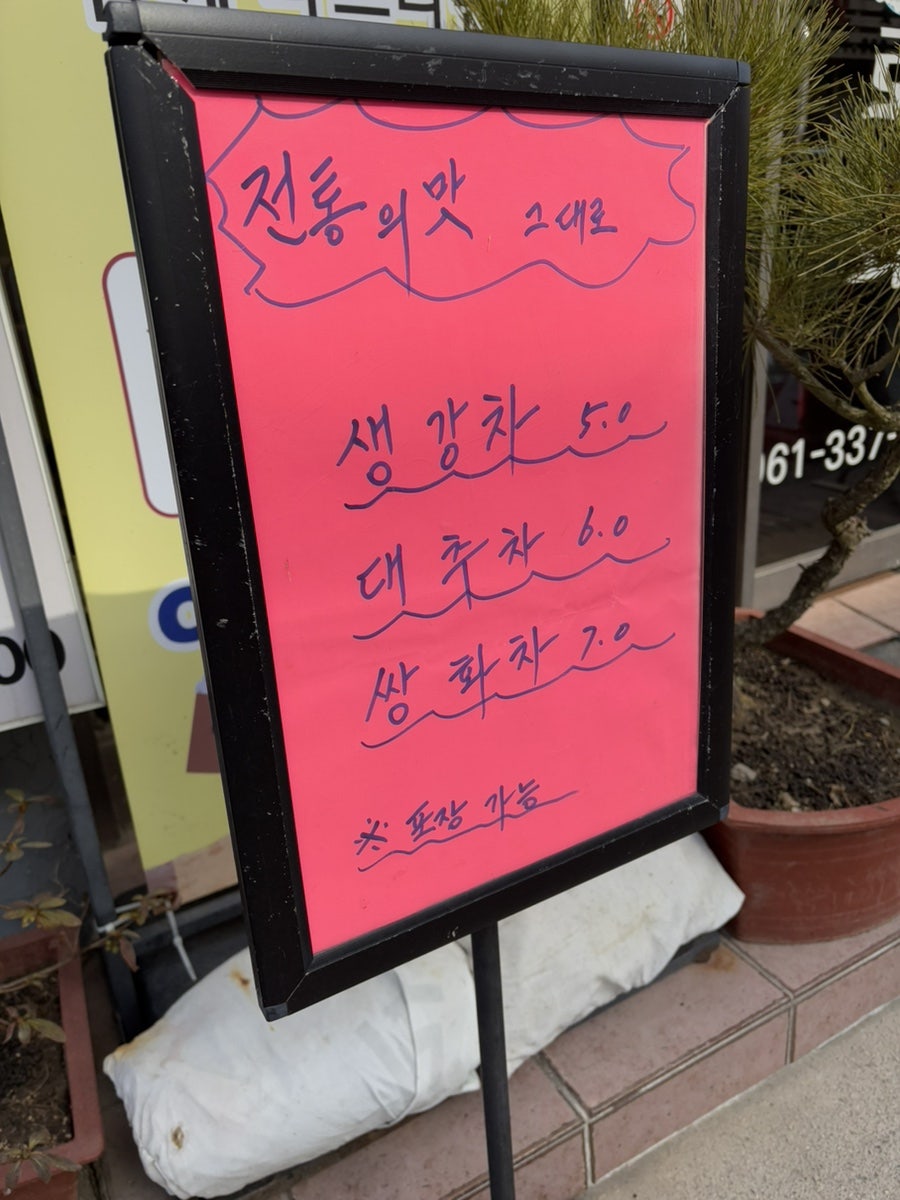 전통의맛 그대로
생강차 5.0
대추차 6.0
쌍화차 7.0
※ 포장 가능
061-337-
00